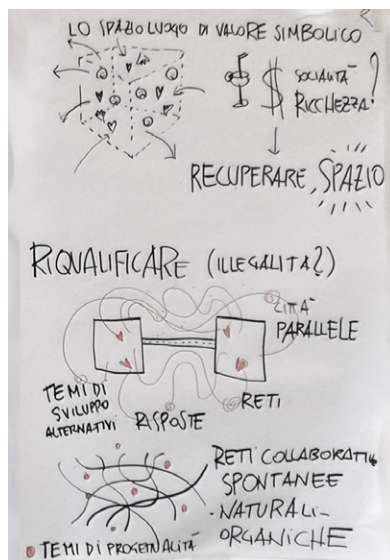 LO SPAZIO LUOGO DI VALORE SIMBOLICO
$ SOCIALITÀ
RICCHEZZA?
RECUPERARE SPAZIO
RIQUALIFICARE (ILLEGALITÀ?)
CITTÀ
PARALLELE
TEMI DI
SVILUPPO
ALTERNATIVI
RISPOSTE
RETI
RETI COLLABORATIVE
SPONTANEE
NATURALI-
ORGANICHE
TEMI DI PROGETTUALITÀ